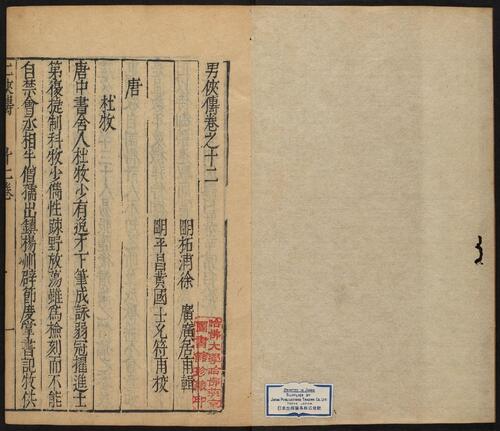 男俠傳卷之十二
明柘浦徐　廣廣居甫輯
明平昌黃國士允符甫校
唐
杜牧
唐中書舍人杜牧少有逸才下筆成詠弱冠擢進士
第復捷制科牧少儁性疎野放蕩雖爲檢刻而不能
自禁會丞相牛僧孺出鎮楊州辟節度掌書記牧供
二俠傳　十二卷　一
哈佛大學哈佛燕京
圖書館珍藏印
PRINTED IN JAPAN
SUPPLIED BY
JAPAN PUBLICATIONS TRADING CO. LTD.
TOKYO JAPAN
日本出版貿易株式會社